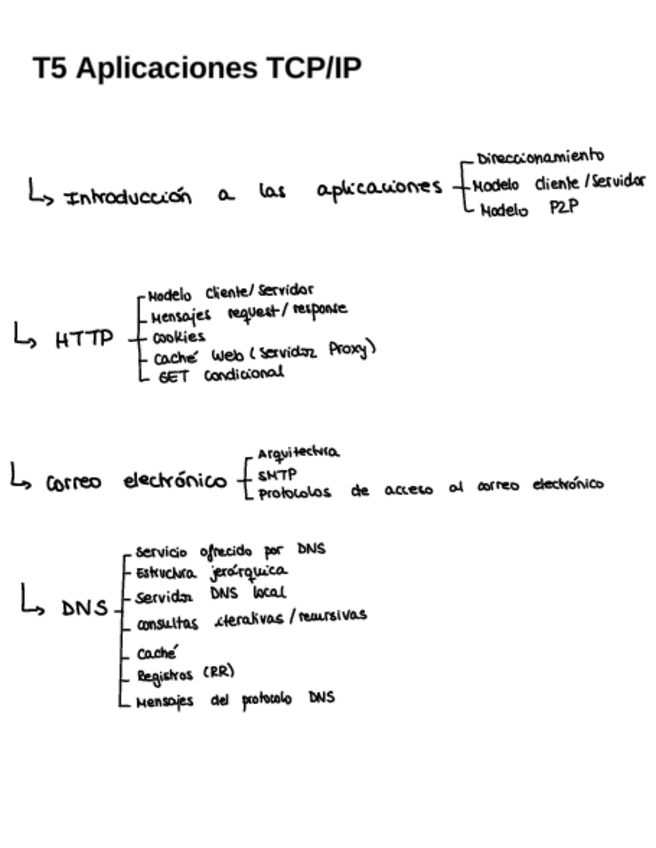 T5 Aplicaciones TCP/IP
Introducción a las aplicaciones
Direccionamiento
Modelo cliente/servidor
Modelo P2P
HTTP
Modelo cliente/servidor
Mensajes request/response
cookies
caché Web (servidor Proxy)
GET condicional
correo electrónico
Arquitectura
SMTP
Protocolos de acceso al correo electrónico
DNS
servicio ofrecido por DNS
Estructura jerárquica
Servidor DNS local
consultas iterativas/recursivas
caché
Registros (RR)
Mensajes del protocolo DNS